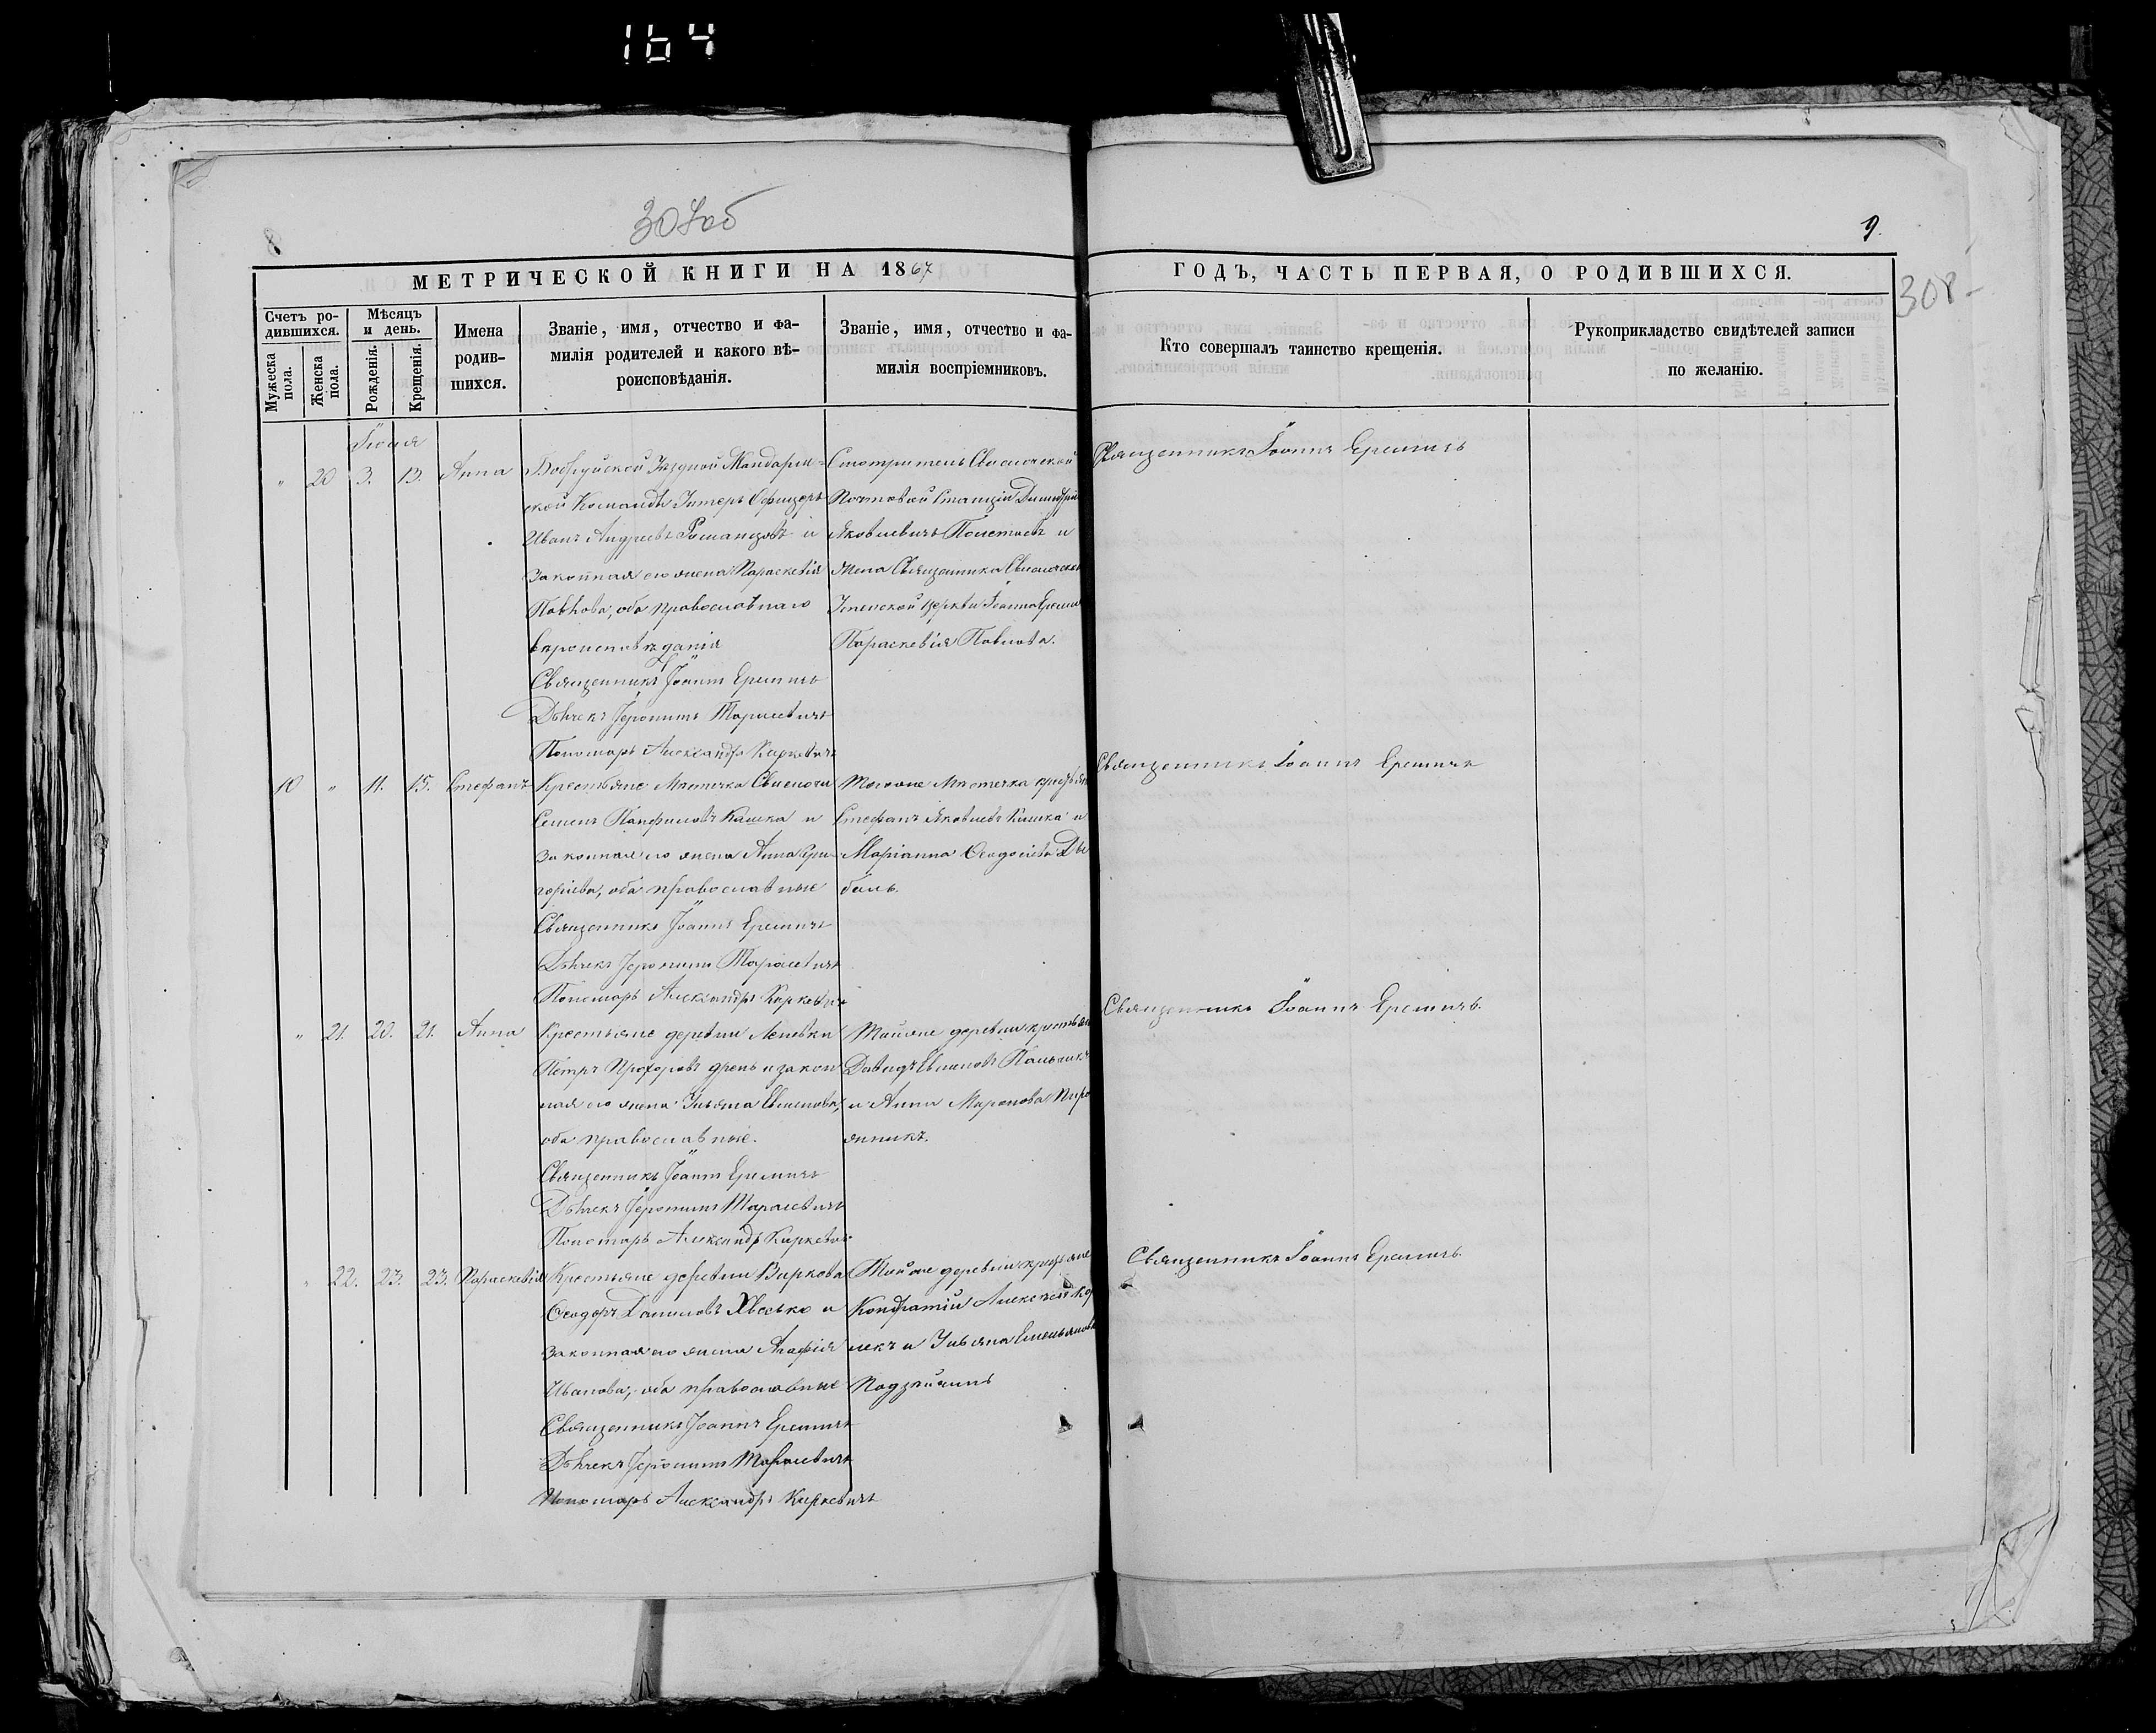 164
307об
8
9.
308
МЕТРИЧЕСКОЙ КНИГИ НА 1867
ГОДЪ, ЧАСТЬ ПЕРВАЯ, О РОДИВШИХСЯ.
Счетъ ро-
дившихся.
Мужеска пола.
Женска пола.
Мѣсяцъ
и день.
Рожденія.
Крещенія.
Имена
родив-
шихся.
Званіе, имя, отчество и фа-
милія родителей и какого вѣ-
роисповѣданія.
Званіе, имя, отчество и фа-
милія воспріемниковъ.
Кто совершалъ таинство крещенія.
Рукоприкладство свидѣтелей записи
по желанію.
"
20
3.
13.
Анна
Бобруйской Уѣздной Жандарм-
ской Команды Унтеръ Офицеръ
Иванъ Андреевъ Романцовъ и
законная его жена Параскевія
Павлова, оба православнаго
вѣроисповѣданія
Священникъ Іоаннъ Еремичъ
Дьячекъ Іеронимъ Тарасевичъ
Пономарь Александръ Киркевичъ
Смотритель Свислочской
Почтовой Станціи Димитрій
Яковлевичъ и
жена Священника Свислочской
Успенской церкви Іоанна
Параскевія Павлова.
Священникъ Іоаннъ Еремичъ
10
"
11.
15.
Стефанъ
Крестьяне Мѣстечка Свислочи
Семенъ Панфиловъ Кашка и
законная его жена Анна Гри-
горіева, оба православные
Священникъ Іоаннъ Еремичъ
Дьячекъ Іеронимъ Тарасевичъ
Пономарь Александръ Киркевичъ
Тогоже Мѣстечка
Стефанъ Яковлевъ Кашка и
Маріанна Ѳеодосіева
Священникъ Іоаннъ Еремичъ
"
21.
20.
21.
Анна
Крестьяне деревни
Петръ Прохоровъ и закон
ная его жена Ульяна
оба православные.
Священникъ Іоаннъ Еремичъ
Дьячекъ Іеронимъ Тарасевичъ
Пономарь Александръ Киркевичъ
Тойже деревни
Давидъ
и Анна Миронова
Священникъ Іоаннъ Еремичъ.
"
22.
23.
23.
Параскевія
Крестьяне деревни Виркова
Ѳеодоръ Даниловъ и
законная его жена Агафія
Иванова, оба православные
Священникъ Іоаннъ Еремичъ
Дьячекъ Іеронимъ Тарасевичъ
Пономарь Александръ Киркевичъ
Тойже деревни крестьяне
Кондратій
и Ульяна Емельянова
Священникъ Іоаннъ Еремичъ.